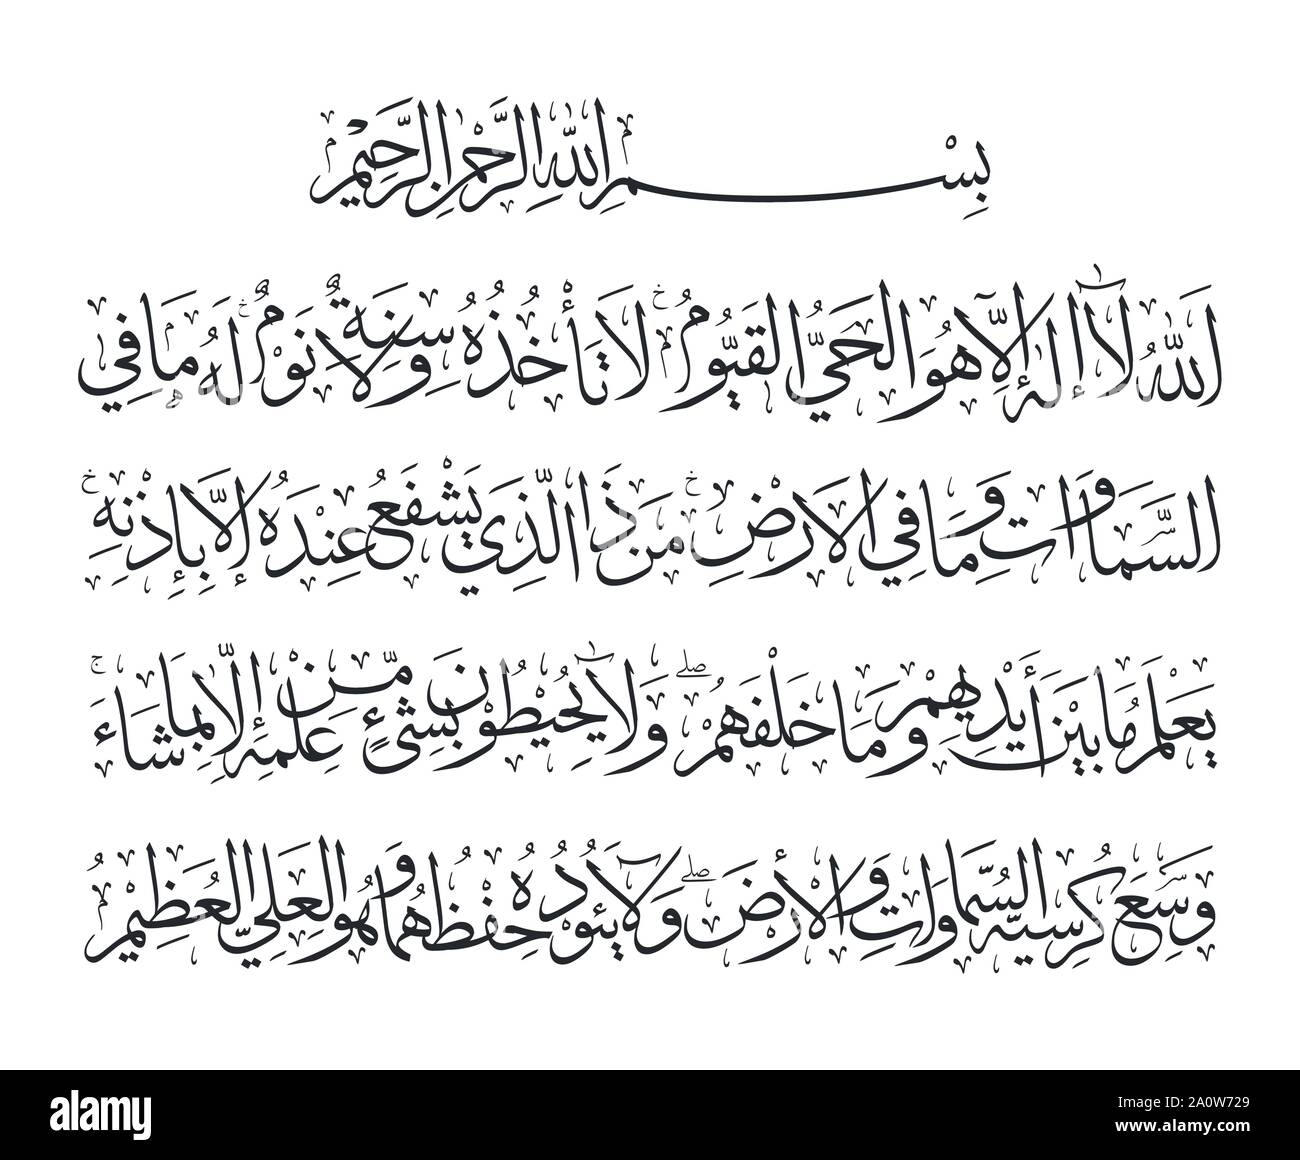 بِسْمِ اللّٰهِ الرَّحْمٰنِ الرَّحِيْمِ
اَللّٰهُ لَآ اِلٰهَ اِلَّا هُوَ الْحَيُّ الْقَيُّومُ لَا تَأْخُذُهُ سِنَةٌ وَلَا نَوْمٌ لَهُ مَا فِي
السَّمَاوَاتِ وَمَا فِي الْاَرْضِ مَنْ ذَا الَّذِي يَشْفَعُ عِنْدَهُ اِلَّا بِاِذْنِهِ
يَعْلَمُ مَا بَيْنَ أَيْدِيهِمْ وَمَا خَلْفَهُمْ وَلَا يُحِيْطُوْنَ بِشَيْءٍ مِّنْ عِلْمِهِ اِلَّا بِمَا شَاءَ
وَسِعَ كُرْسِيُّهُ السَّمَاوَاتِ وَالْأَرْضَ وَلَا يَئُوْدُهُ حِفْظُهُمَا وَهُوَ الْعَلِيُّ الْعَظِيْمُ
alamy
a
alamy
Image ID: 2A0W729
www.alamy.com